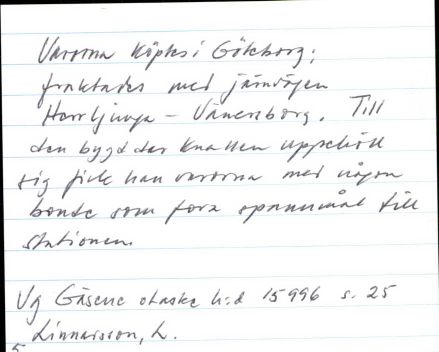 Varorna köptes i Göteborg;
fraktades med järnvägen
Herrljunga - Vänersborg. Till
den bygd där knallen uppehöll
sig fick han varorna med någon
bonde som fora spannmål till
stationen.
Vg Gäsene härad 15996 s. 25
Linnarsson, L.
5